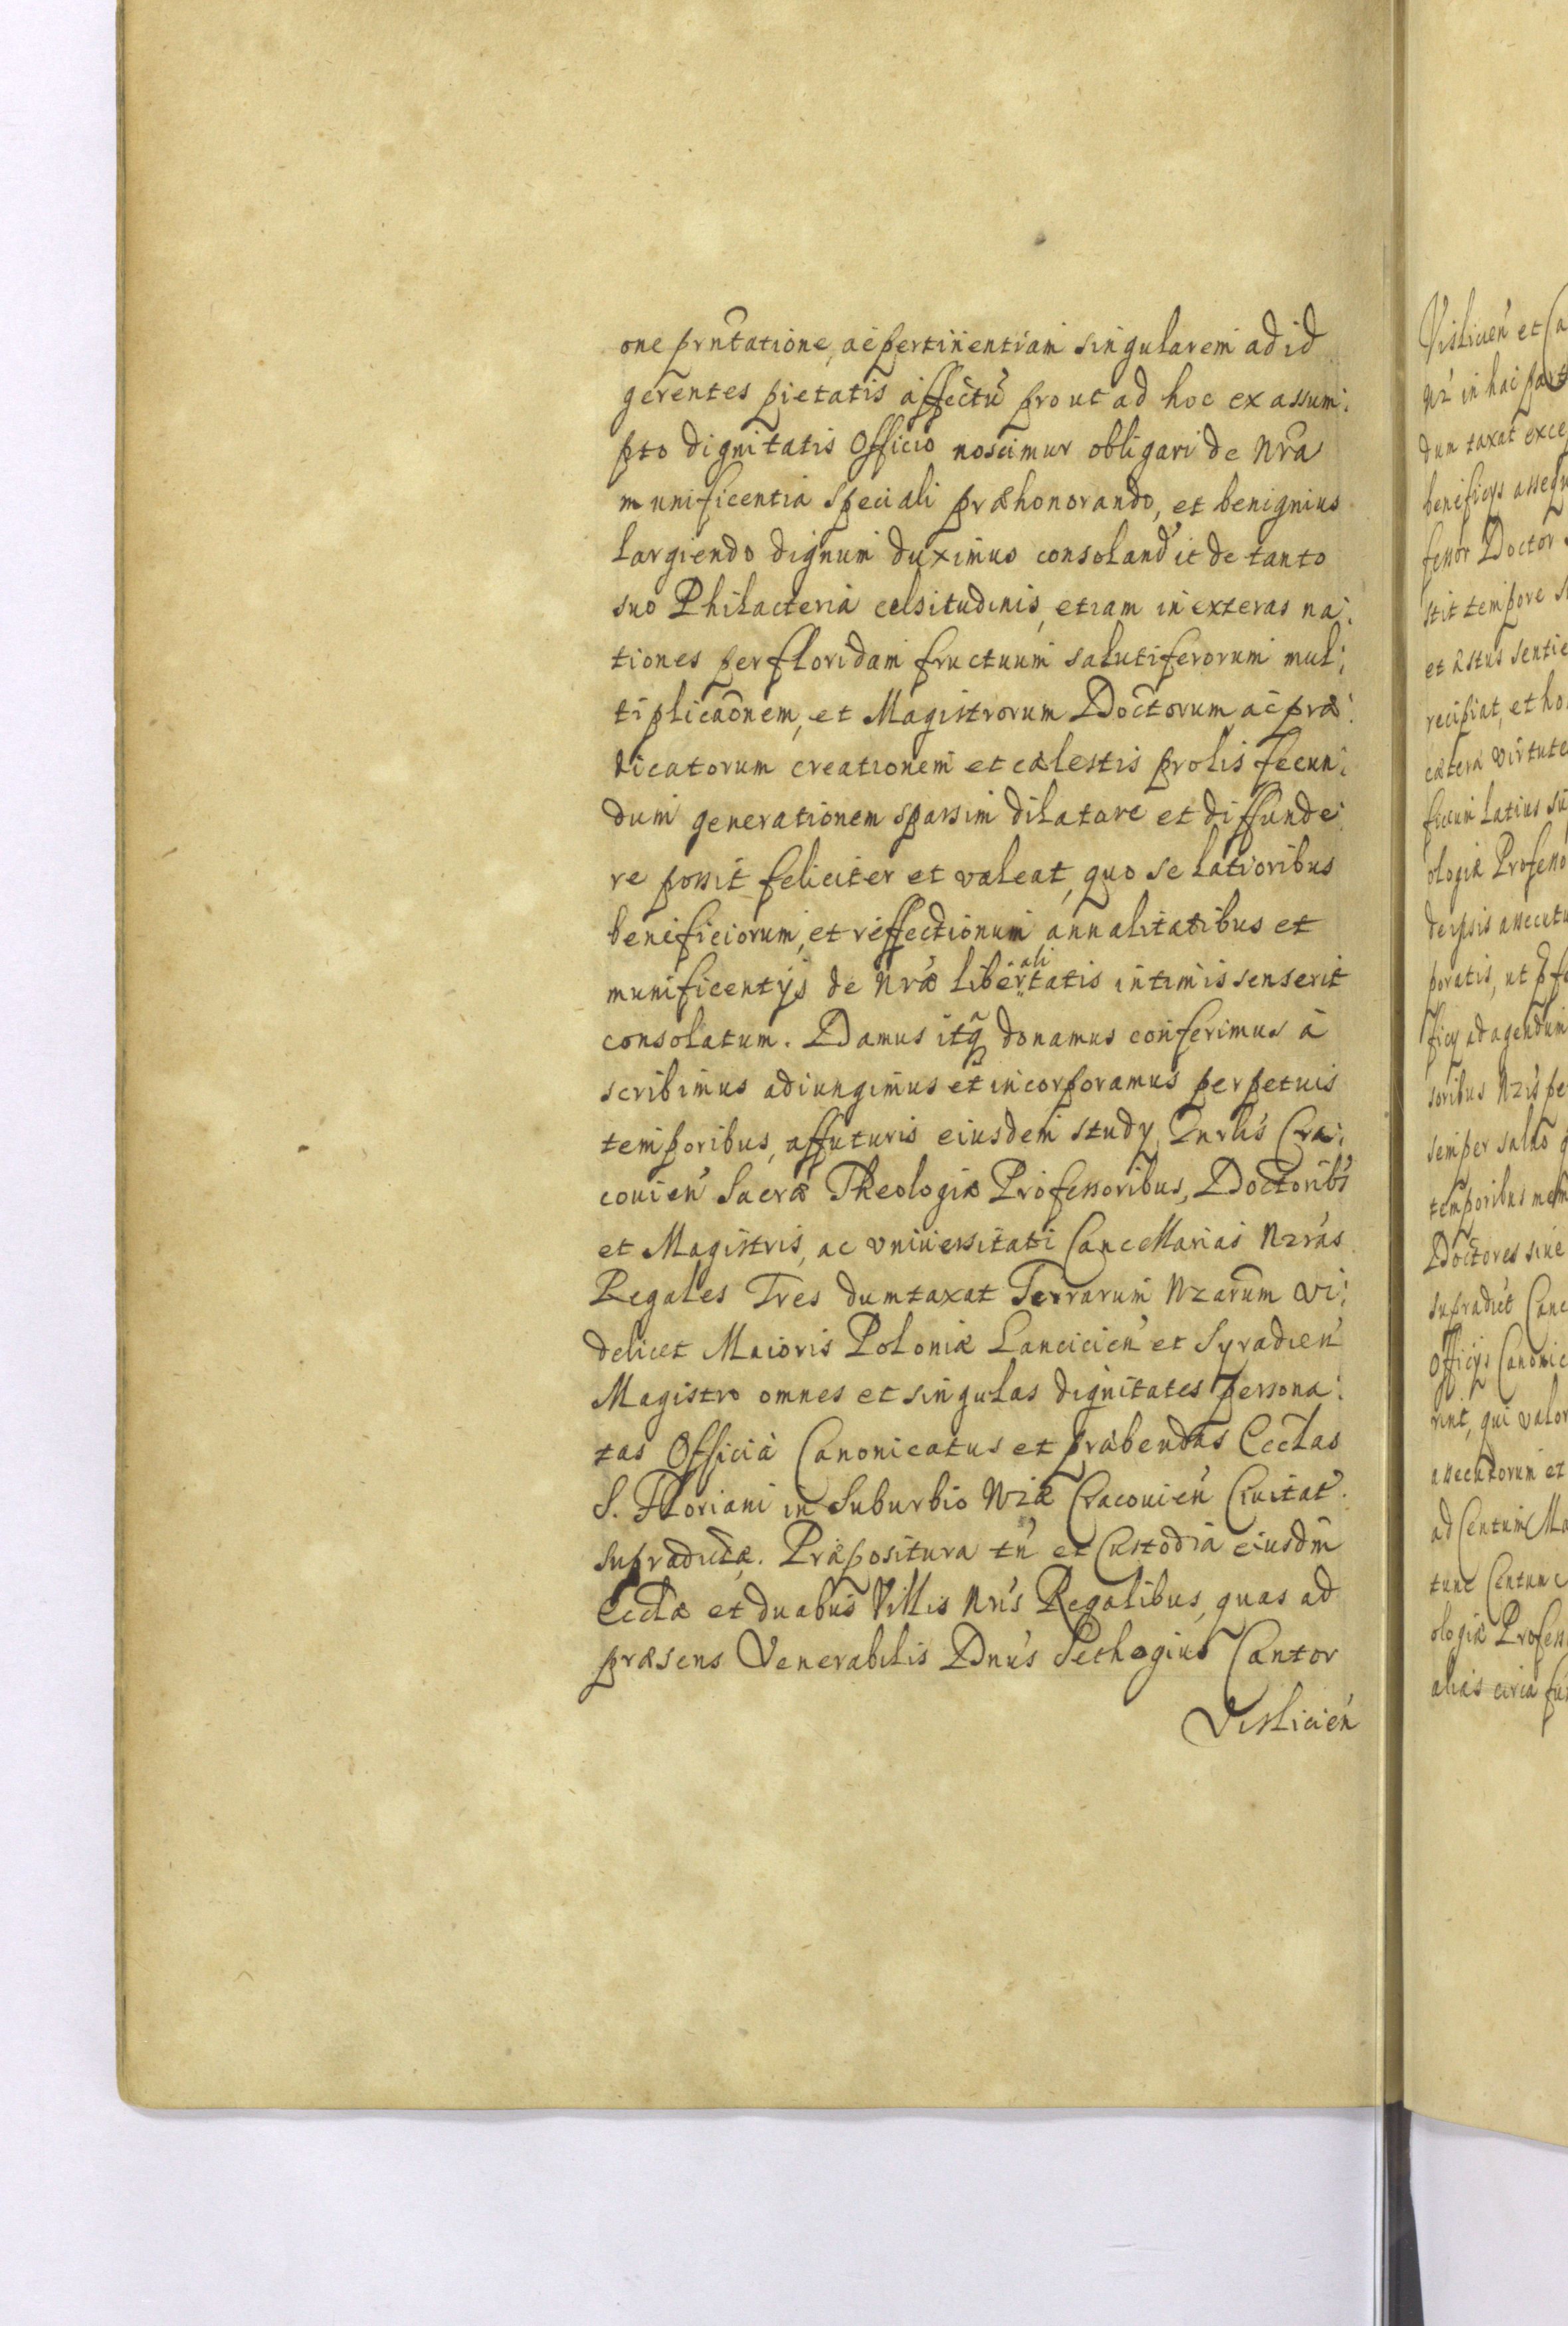 one prñtatione, ac pertinentiam singularem ad id
gerentes pietatis affectũ prout ad hoc ex assum:
pto dignitatis Officio noscimur obligari de Nrã
munificentia speciali præhonorando, et benignius
largiendo dignum duximus consoland' ut de tanto
suo Philacteria celsitudinis, etiam in exteras na:
tiones per floridam fructuum salutiferorum mul:
tiplicaõnem, et Magistrorum Doctorum ac præ:
dicatorum creationem et cælestis prolis fecun:
dum generationem sparsim dilatare et diffunde:
re possit feliciter et valeat, quo se latioribus
beneficiorum, et reffectionum annalitatibus et
munificentijs de Nræ libertatis intimis senserit
ali
consolatum. Damus itq̃ donamus conferimus a
scribimus adiungimus et incorporamus perpetuis
temporibus, affuturis eiusdem study Gnrlis Cra:
couien' Sacræ Theologiæ Professoribus, Doctorib's
et Magistris, ac vniuersitati Cancellarias Nr̃as
Regales Tres dumtaxat Terrarum Nr̃arum vi:
delicet Maioris Poloniæ Lancicien' et Syradien'
Magistro omnes et singulas dignitates persona:
tas Officia Canonicatus et præbendas Eccl̃as
S. Floriani in Suburbio Nr̃æ Cracouien' Ciuitat'
supradictæ. Præpositura tñ et Custodia eiusdm̃
Eccl̃æ et duabus Villis Nris Regalibus, quas ad
præsens Venerabilis Dnus Pethogius Cantor
Vislicien'
Vislicien' et Ca
Nr' in hac part
dum taxat exce
beneficys assequ
fessor Doctor
stit tempore s
et æstus sentie
recipiat, et ho
cætera virtute
ficum latius su
ologiæ Professo
de ipsis assecutu
poratis, ut
ficy ad agendum
soribus Nr̃is pe
semper saluo
temporibus
Doctores siue
supradict' Canc
Officijs Canonic
rint, qui valor
assecutorum et
ad Centum Ma
tunc Centum
ologiæ Profess
alias circa fu